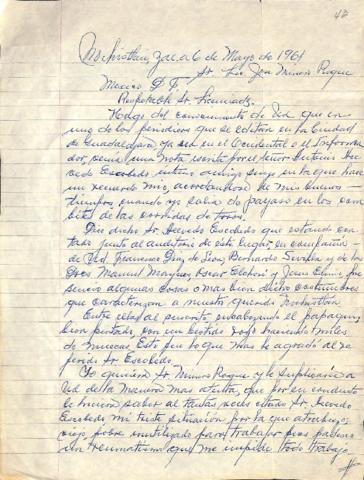 42
Nochistlán, Zac. a 6 de Mayo de 1961
Sr. Lic. Jose Minero Roque
Mexico D. F.
Respetable Sr. Licenciado.
Hago del conocimiento de Ud. que en
uno de los periodicos que se editan en la Ciudad
de Guadalajara ya sea en el Occidental o el Informa
dor, una nota escrita por el señor Arturo
Escobedo intimo amigo en la que hace
un recuerdo mio, acordandose de mis buenos
tiempos cuando yo salia de payaso en los con
bites de las corridas de toros.
Dice dicho Sr. Escobedo que estando con
tado junto al auditorio de este lugar, en compañia
de Ud. Francisco Diaz de Leon, Bernardo Sevilla y de los
Sres. Manuel Marquez, Oscar y Jesus
algunas cosas o mas bien dicho costumbres
que caracterizan a nuestro querido Nochistlan.
Entre ellas al suscrito, el papaquis
bien pintado, con un vestido rojo haciendo miles
de muecas. Esto fue lo que mas le agradó al re
ferido Sr. Escobedo.
Yo quisiera Sr. Minero Roque y le suplicaria a
Ud. de la manera mas atenta, que por su conducto
le hiciera saber al tantas veces citado Sr.
Escobedo mi triste situación por la que atravieso,
viejo pobre inutilizado para trabajar pues padezco
un reumatismo que me impide todo trabajo.